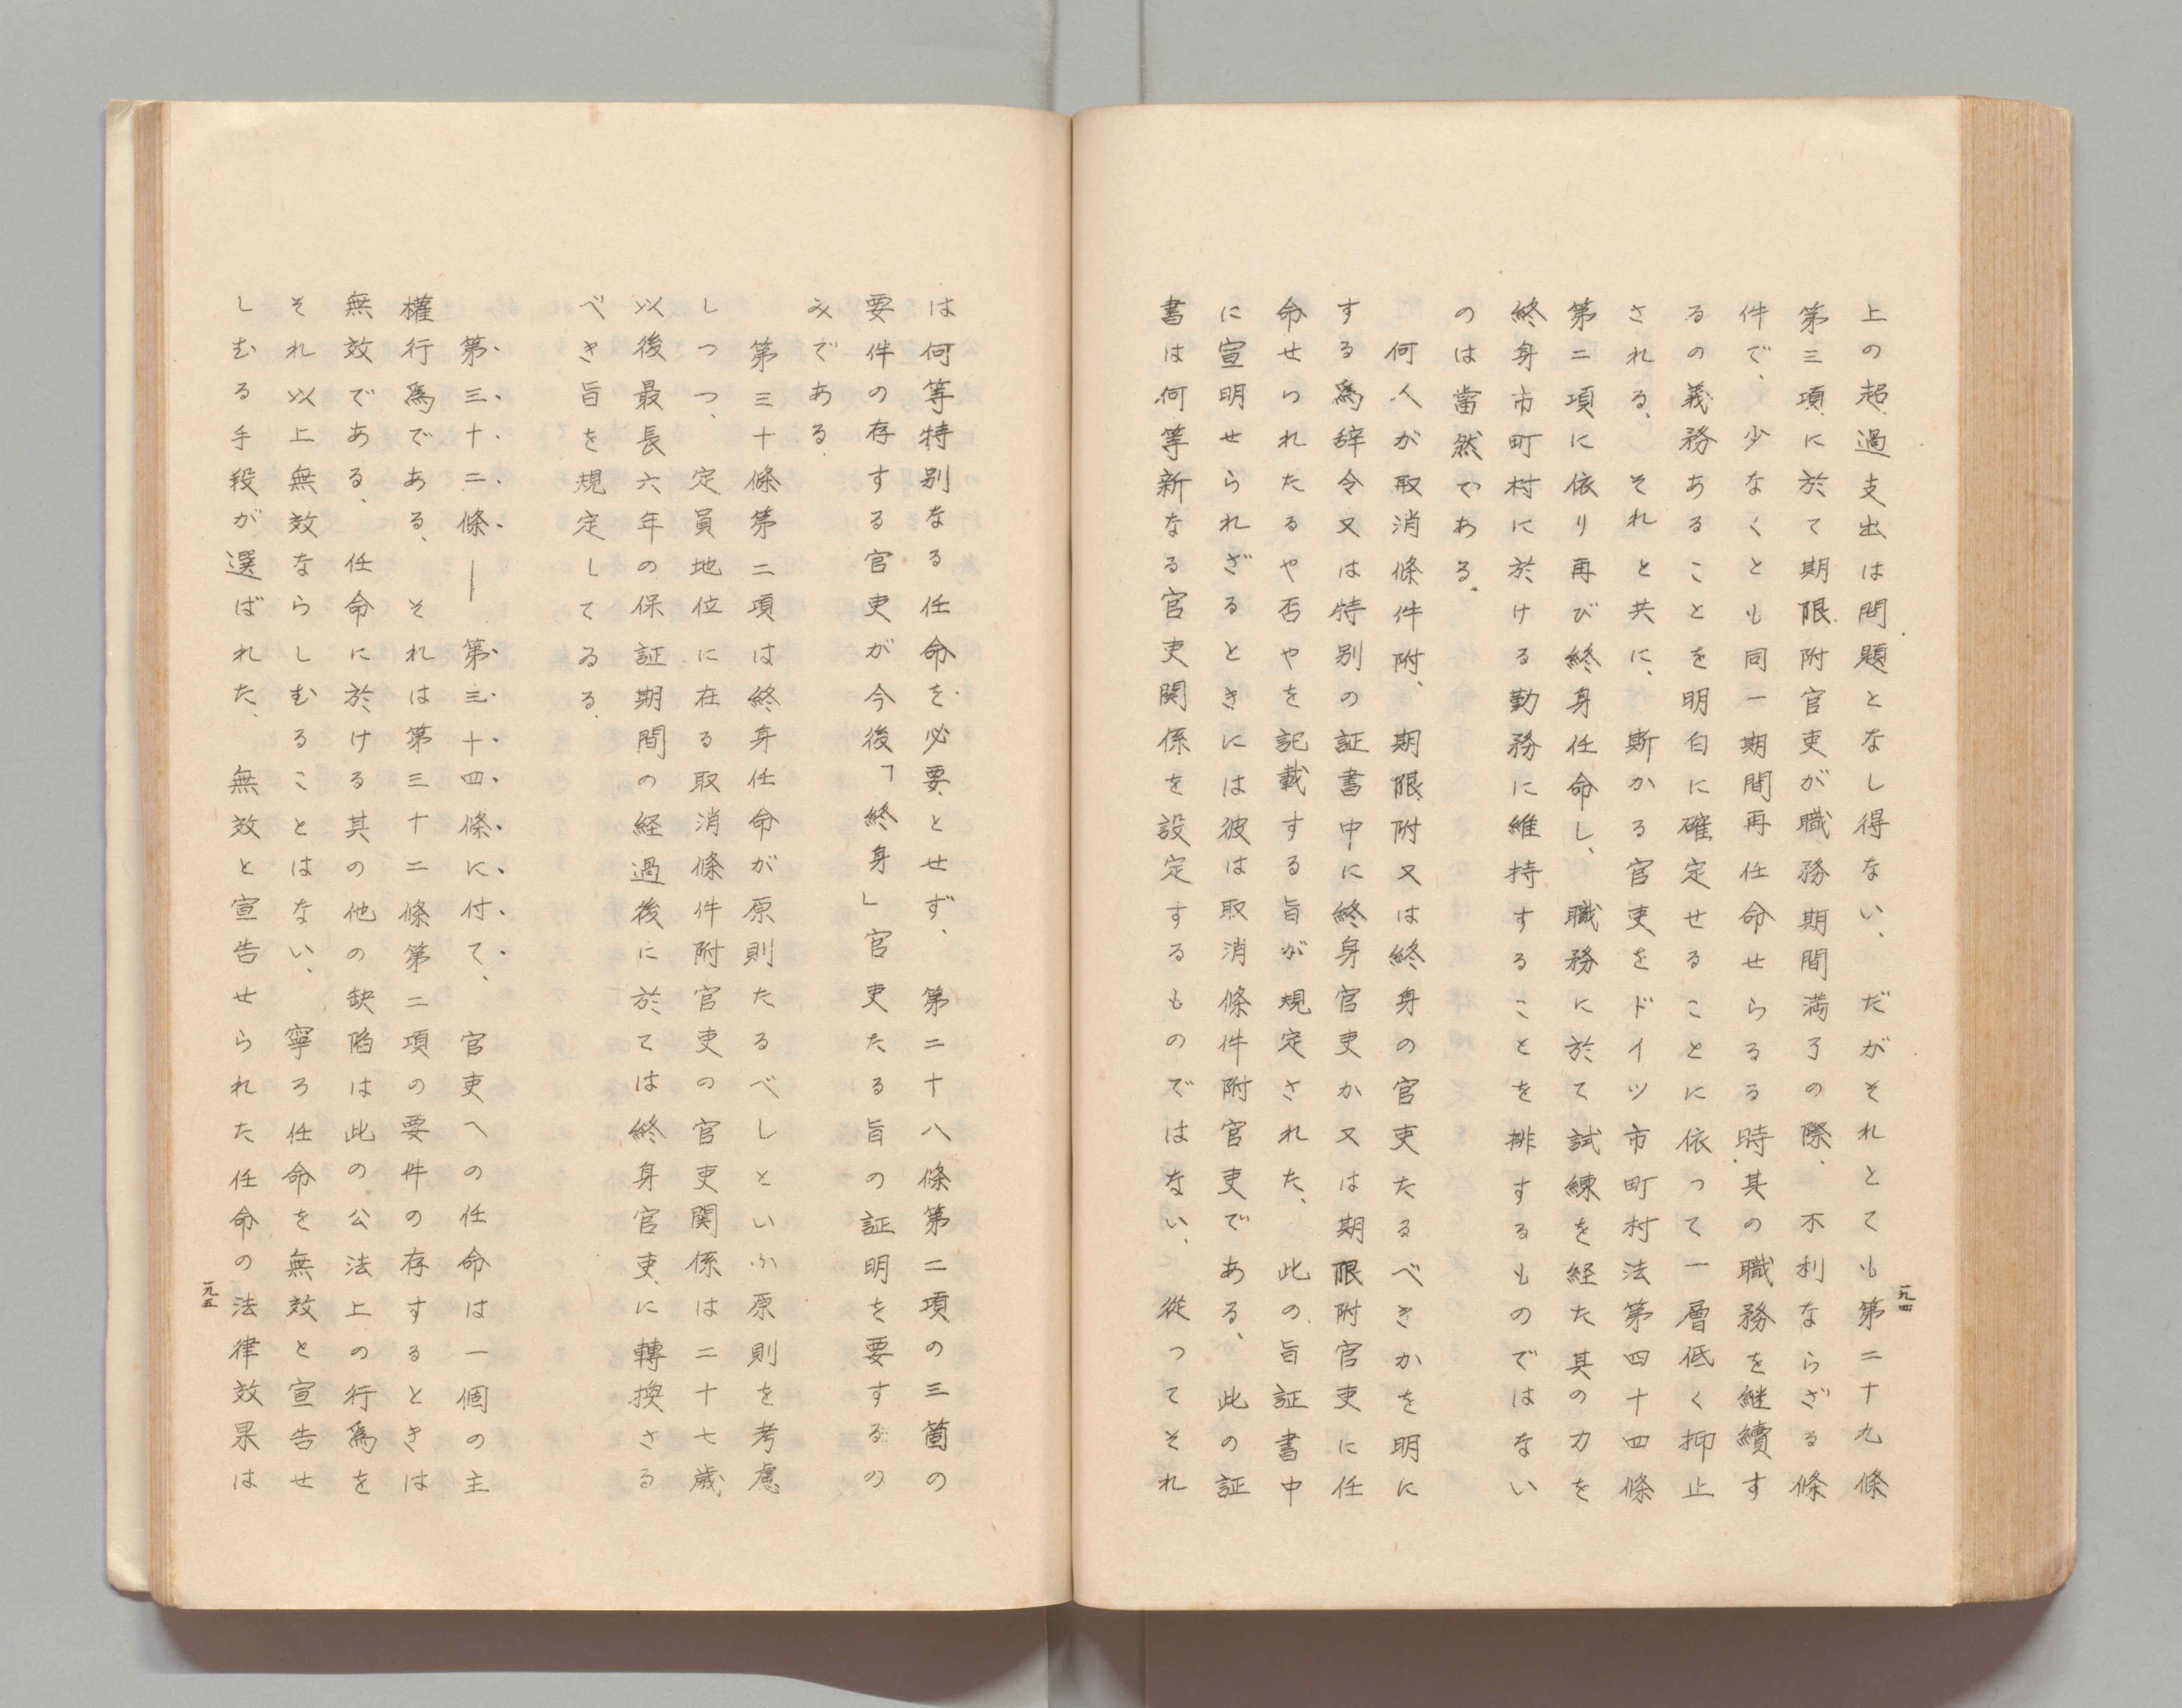 上の超過支出は問題となし得ない、だがそれとても第二十九條
第三項に於て期限附官吏が職務期間満了の際、不利ならざる條
件で、少なくとも同一期間再任命せらるる時其の職務を継續す
るの義務あることを明白に確定せることに依つて一層低く抑止
される、それと共に、斯かる官吏をドイツ市町村法第四十四條
第二項に依り再び終身任命し、職務に於て試練を経た其の力を
終身市町村に於ける勤務に維持することを排するものではない
のは當然である。
何人が取消條件附、期限附又は終身の官吏たるべきかを明に
する爲辞令又は特別の証書中に終身官吏か又は期限附官吏に任
命せられたるや否やを記載する旨が規定された、此の旨証書中
に宣明せられざるときには彼は取消條件附官吏である、此の証
書は何等新なる官吏関係を設定するものではない、從つてそれ
一九四
は何等特別なる任命を必要とせず、第二十八條第二項の三箇の
要件の存する官吏が今後「終身」官吏たる旨の証明を要するの
みである、
第三十條第二項は終身任命が原則たるべしといふ原則を考慮
しつつ、定員地位に在る取消條件附官吏の官吏関係は二十七歳
以後最長六年の保証期間の経過後に於ては終身官吏に轉換さる
べき旨を規定してゐる、
第三十二條—第三十四條に付て、官吏への任命は一個の主
權行爲である、それは第三十二條第二項の要件の存するときは
無效である、任命に於ける其の他の缺陷は此の公法上の行爲を
それ以上無效ならしむることはない、寧ろ任命を無效と宣告せ
しむる手段が選ばれた、無效と宣告せられた任命の法律效果は
一九五